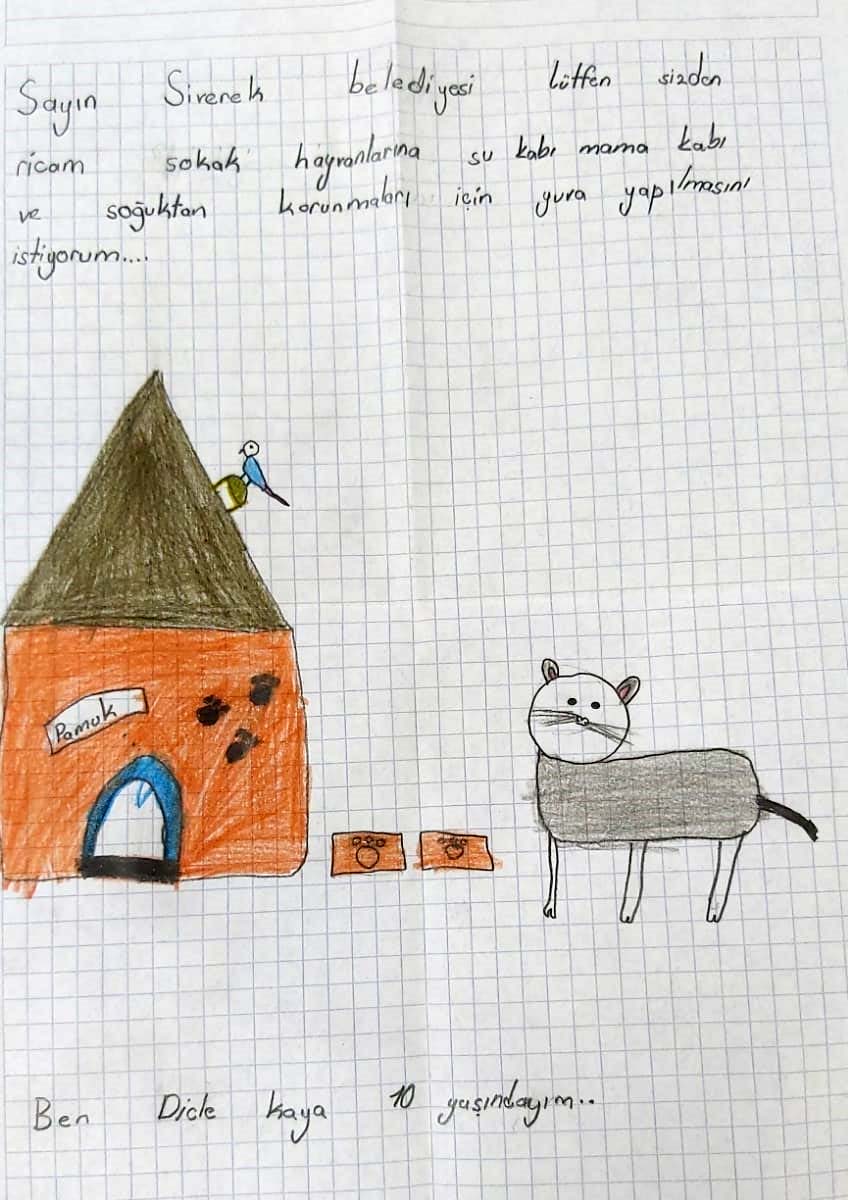 Sayın Siverek belediyesi lütfen sizden
ricam sokak hayvanlarına su kabı mama kabı
ve soğuktan korunmaları için yuva yapılmasını
istiyorum....
Pamuk
Ben Dicle kaya 10 yaşındayım..